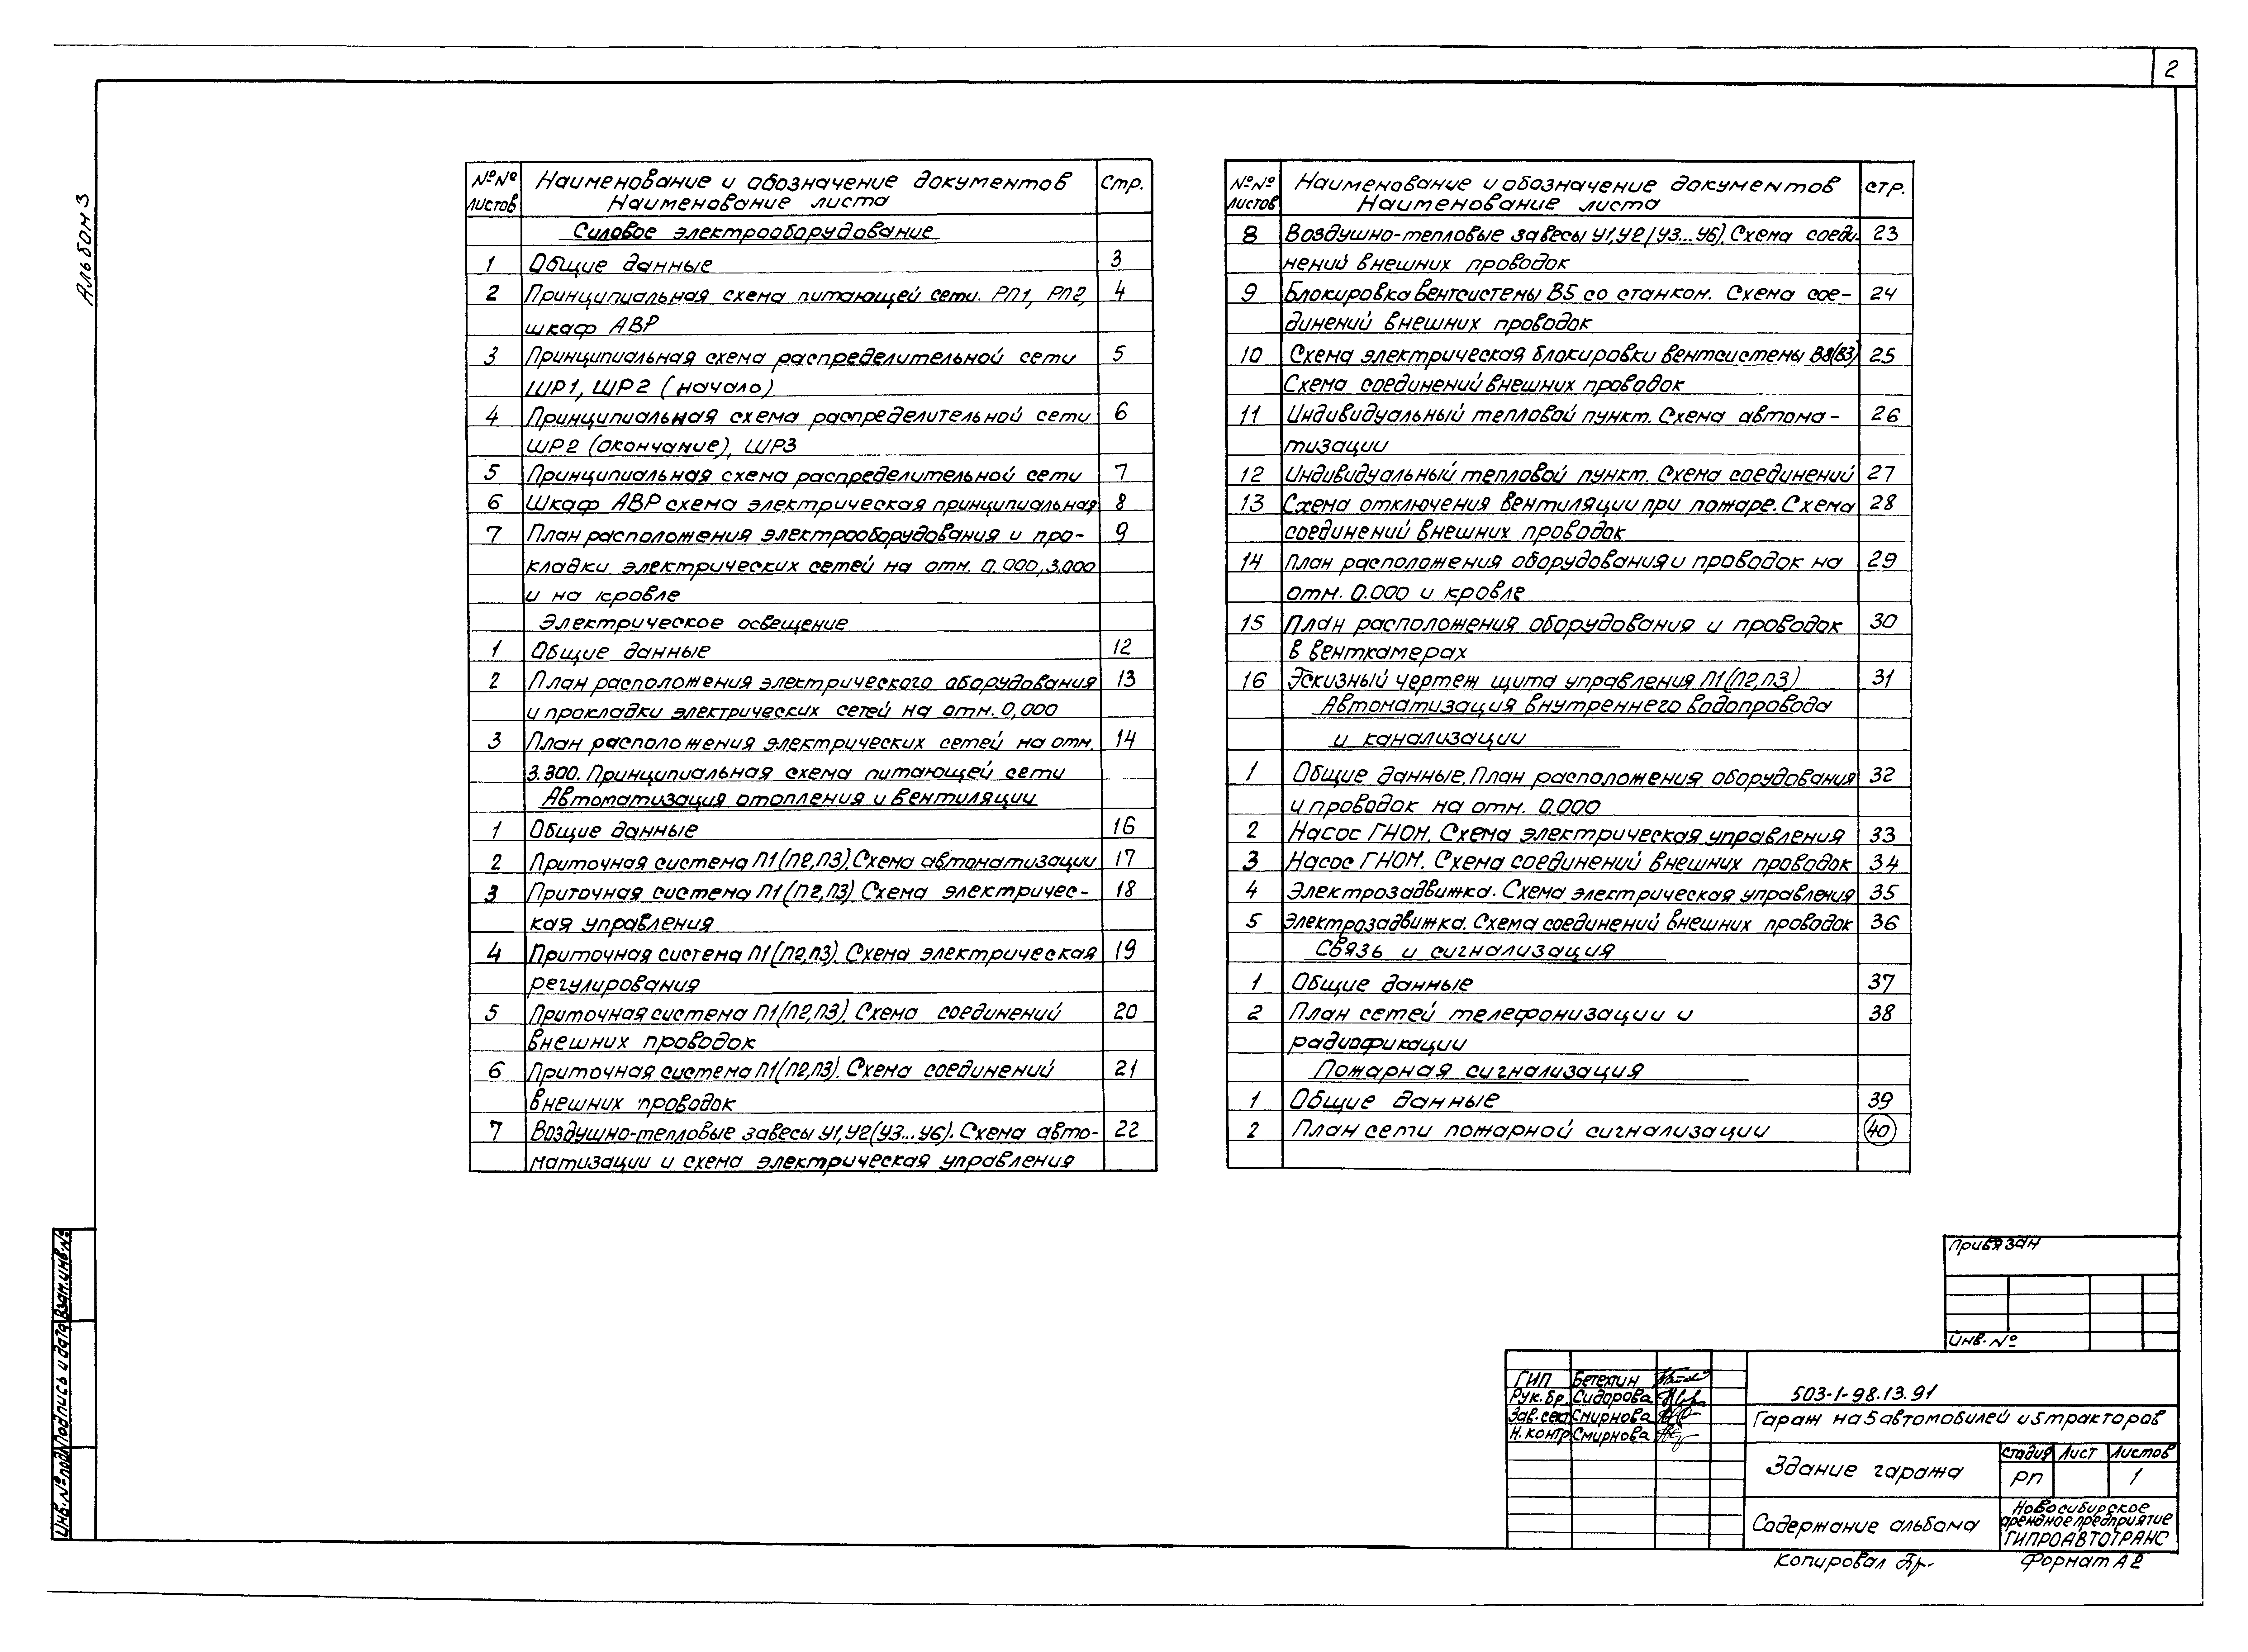 2
Альбом 3
№№ листов
Наименование и обозначение документов
Наименование листа
Стр.
Силовое электрооборудование
1 Общие данные 3
2 Принципиальная схема питающей сети. РП1, РП2, 4
шкаф АВР
3 Принципиальная схема распределительной сети 5
ШР1, ШР2 (начало)
4 Принципиальная схема распределительной сети 6
ШР2 (окончание), ШР3
5 Принципиальная схема распределительной сети 7
6 Шкаф АВР схема электрическая принципиальная 8
7 План расположения электрооборудования и про- 9
кладки электрических сетей на отм. 0.000, 3.000
и на кровле
Электрическое освещение
1 Общие данные 12
2 План расположения электрического оборудования 13
и прокладки электрических сетей на отм. 0,000
3 План расположения электрических сетей на отм. 14
3.300. Принципиальная схема питающей сети
Автоматизация отопления и вентиляции
1 Общие данные 16
2 Приточная система П1(П2,П3). Схема автоматизации 17
3 Приточная система П1(П2,П3). Схема электричес- 18
кая управления
4 Приточная система П1(П2,П3). Схема электрическая 19
регулирования
5 Приточная система П1(П2,П3). Схема соединений 20
внешних проводок
6 Приточная система П1(П2,П3). Схема соединений 21
внешних проводок
7 Воздушно-тепловые завесы У1,У2(У3...У6). Схема авто- 22
матизации и схема электрическая управления
№№ листов
Наименование и обозначение документов
Наименование листа
стр.
8 Воздушно-тепловые завесы У1,У2(У3...У6). Схема соеди- 23
нений внешних проводок
9 Блокировка вентсистемы В5 со станком. Схема сое- 24
динений внешних проводок
10 Схема электрическая блокировки вентсистемы В8(В3) 25
Схема соединений внешних проводок
11 Индивидуальный тепловой пункт. Схема автома- 26
тизации
12 Индивидуальный тепловой пункт. Схема соединений 27
13 Схема отключения вентиляции при пожаре. Схема 28
соединений внешних проводок
14 План расположения оборудования и проводок на 29
отм. 0.000 и кровле
15 План расположения оборудования и проводок 30
в венткамерах
16 Эскизный чертеж щита управления П1(П2,П3) 31
Автоматизация внутреннего водопровода
и канализации
1 Общие данные. План расположения оборудования 32
и проводок на отм. 0.000
2 Насос ГНОМ. Схема электрическая управления 33
3 Насос ГНОМ. Схема соединений внешних проводок 34
4 Электрозадвижка. Схема электрическая управления 35
5 Электрозадвижка. Схема соединений внешних проводок 36
Связь и сигнализация
1 Общие данные 37
2 План сетей телефонизации и 38
радиофикации
Пожарная сигнализация
1 Общие данные 39
2 План сети пожарной сигнализации 40
Взам.инв.№
Подпись и дата
Инв.№ подл
Привязан
Инв. №
ГИП Бетехтин
Рук. бр. Сидорова
Зав. сект Смирнова
Н. контр Смирнова
503-1-98.13.91
Гараж на 5 автомобилей и 5 тракторов
Здание гаража
стадия Лист Листов
РП 1
Содержание альбома
Новосибирское
арендное предприятие
ГИПРОАВТОТРАНС
Копировал
Формат А2